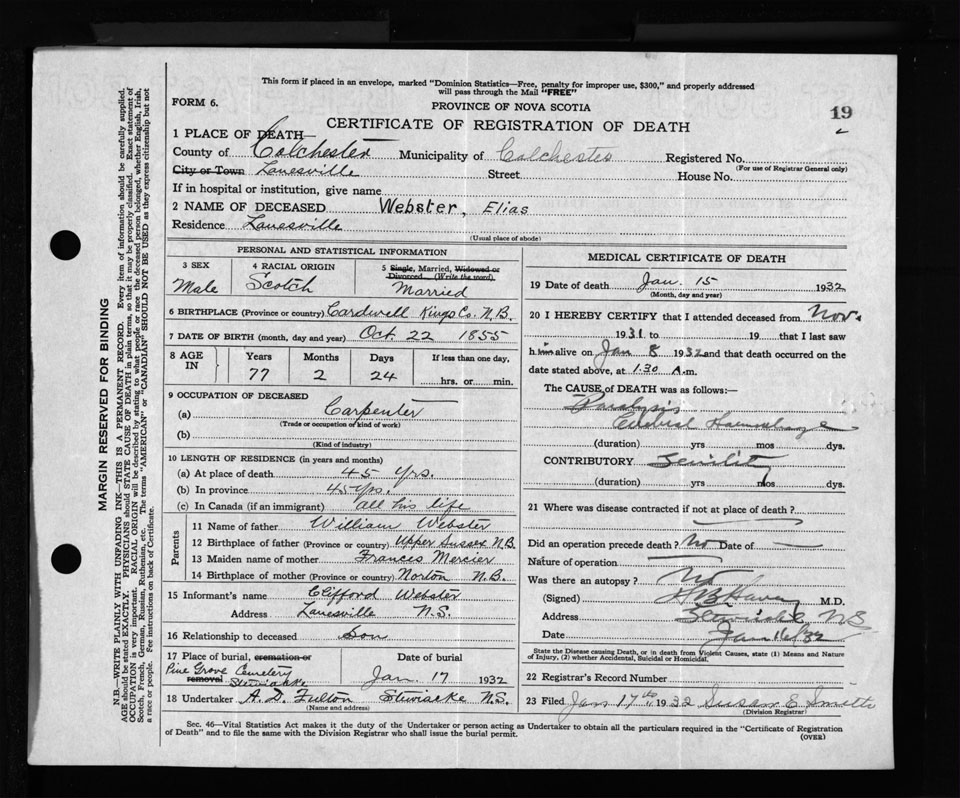 This form if placed in an envelope, marked "Dominion Statistics—Free, penalty for improper use, $300," and properly addressed
will pass through the Mail "FREE"
FORM 6.
PROVINCE OF NOVA SCOTIA
19
CERTIFICATE OF REGISTRATION OF DEATH
1 PLACE OF DEATH—
County of Colchester Municipality of Colchester Registered No.
(For use of Registrar General only)
City or Town Lanesville Street House No.
If in hospital or institution, give name
2 NAME OF DECEASED Webster, Elias
Residence Lanesville
(Usual place of abode)
PERSONAL AND STATISTICAL INFORMATION
3 SEX
Male
4 RACIAL ORIGIN
Scotch
5 Single, Married, Widowed or
Divorced (Write the word)
Married
6 BIRTHPLACE (Province or country) Cardwell Kings Co. N.B.
7 DATE OF BIRTH (month, day and year) Oct. 22 1855
8 AGE IN
Years Months Days If less than one day,
77 2 24 hrs. or min.
9 OCCUPATION OF DECEASED
(a) Carpenter
(Trade or occupation or kind of work)
(b)
(Kind of industry)
10 LENGTH OF RESIDENCE (in years and months)
(a) At place of death 45 yrs.
(b) In province 45 yrs.
(c) In Canada (if an immigrant) all his life
Parents
11 Name of father William Webster
12 Birthplace of father (Province or country) Upper Sussex N.B.
13 Maiden name of mother Frances Mercier
14 Birthplace of mother (Province or country) Norton N.B.
15 Informant's name Clifford Webster
Address Lanesville N.S.
16 Relationship to deceased Son
17 Place of burial, cremation or
removal
Pine Grove Cemetery
Stewiacke
Date of burial
Jan. 17 1932
18 Undertaker A. D. Fulton Stewiacke N.S.
(Name and address)
MEDICAL CERTIFICATE OF DEATH
19 Date of death Jan. 15 1932
(Month, day and year)
20 I HEREBY CERTIFY that I attended deceased from Nov.
1931 to 19 that I last saw
him alive on Jan 8 1932 and that death occurred on the
date stated above, at 1.30 A.m.
The CAUSE OF DEATH was as follows:—
Paralysis
Cerebral Haemorrhage
(duration) yrs mos dys.
CONTRIBUTORY Senility
(duration) yrs mos dys.
21 Where was disease contracted if not at place of death?
Did an operation precede death? No Date of
Nature of operation
Was there an autopsy? No
(Signed) M.D.
Address Stewiacke NS
Date Jan 16/32
State the Disease causing Death, or in death from Violent Causes, state (1) Means and Nature
of Injury, (2) whether Accidental, Suicidal or Homicidal.
22 Registrar's Record Number
23 Filed Jan 17th 1932 Susan E Smith
(Division Registrar)
Sec. 46—Vital Statistics Act makes it the duty of the Undertaker or person acting as Undertaker to obtain all the particulars required in the "Certificate of Registration
of Death" and to file the same with the Division Registrar who shall issue the burial permit.
(OVER)
MARGIN RESERVED FOR BINDING
N.B.—WRITE PLAINLY WITH UNFADING INK—THIS IS A PERMANENT RECORD. Every item of information should be carefully supplied.
AGE should be stated EXACTLY. PHYSICIANS should STATE CAUSE OF DEATH in plain terms, so that it may be properly classified. Exact statement of
OCCUPATION is very important. RACIAL ORIGIN will be described by stating to what people or race the deceased person belonged, whether English, Irish,
Scotch, French, German, Russian, Ruthenian, etc. The terms "AMERICAN" or "CANADIAN" SHOULD NOT BE USED as they express citizenship but not
a race or people. Fee instructions on back of Certificate.